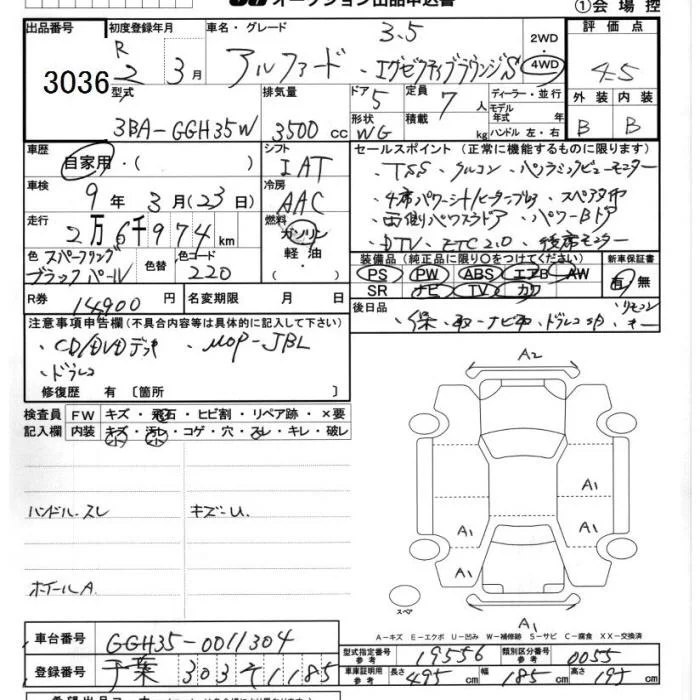 オークション出品申込書
①会場控
出品番号
3036
初度登録年月
R 2 3月
車名・グレード
3.5
アルファード・エグゼクティブラウンジS
2WD
4WD
評価点
4.5
外装 内装
B B
型式
3BA-GGH35W
排気量
3500cc
ドア 5
形状 WG
定員 7人
積載 kg
ディーラー・並行
モデル年式 年
ハンドル 左・右
車歴
自家用・( )
シフト
IAT
セールスポイント (正常に機能するものに限ります)
・TSS・クルコン・パノラミックビューモニター
・4席パワーシート/ヒーター
・両側パワースライドドア・パワーBドア
・DTV・ETC2.0・後席モニター
車検
9年 3月(23日)
冷房
AAC
走行
2万6千974km
燃料
ガソリン
軽油
( )
色
スパークリングブラックパール
色替
色コード
220
装備品 (純正品に限り○をつけてください)
PS PW ABS エアB AW
SR ナビ TV カワ
新車保証書
有 無
R券 14900円
名変期限 月 日
後日品
・保・取・ナビ取・ドラレコ・リモコンキー
注意事項申告欄(不具合内容等は具体的に記入して下さい)
・CD/DVDデッキ ・MOP-JBL
・ドラレコ
修復歴 有〔箇所 〕
検査員記入欄
FW キズ・飛石・ヒビ割・リペア跡・×要
内装 キズ・汚れ・コゲ・穴・スレ・キレ・破レ
小 小
ハンドル.スレ キズ.U.
ホイールA
A2
A1
A1
A1
A1
A1
スペア
A-キズ E-エクボ U-凹み W-補修跡 S-サビ C-腐食 XX-交換済
車台番号
GGH35-0011304
登録番号
千葉 303 そ 1185
型式指定番号 参考 19556
類別区分番号 参考 0055
車庫証明用 参考 長さ 495cm 幅 185cm 高さ 195cm